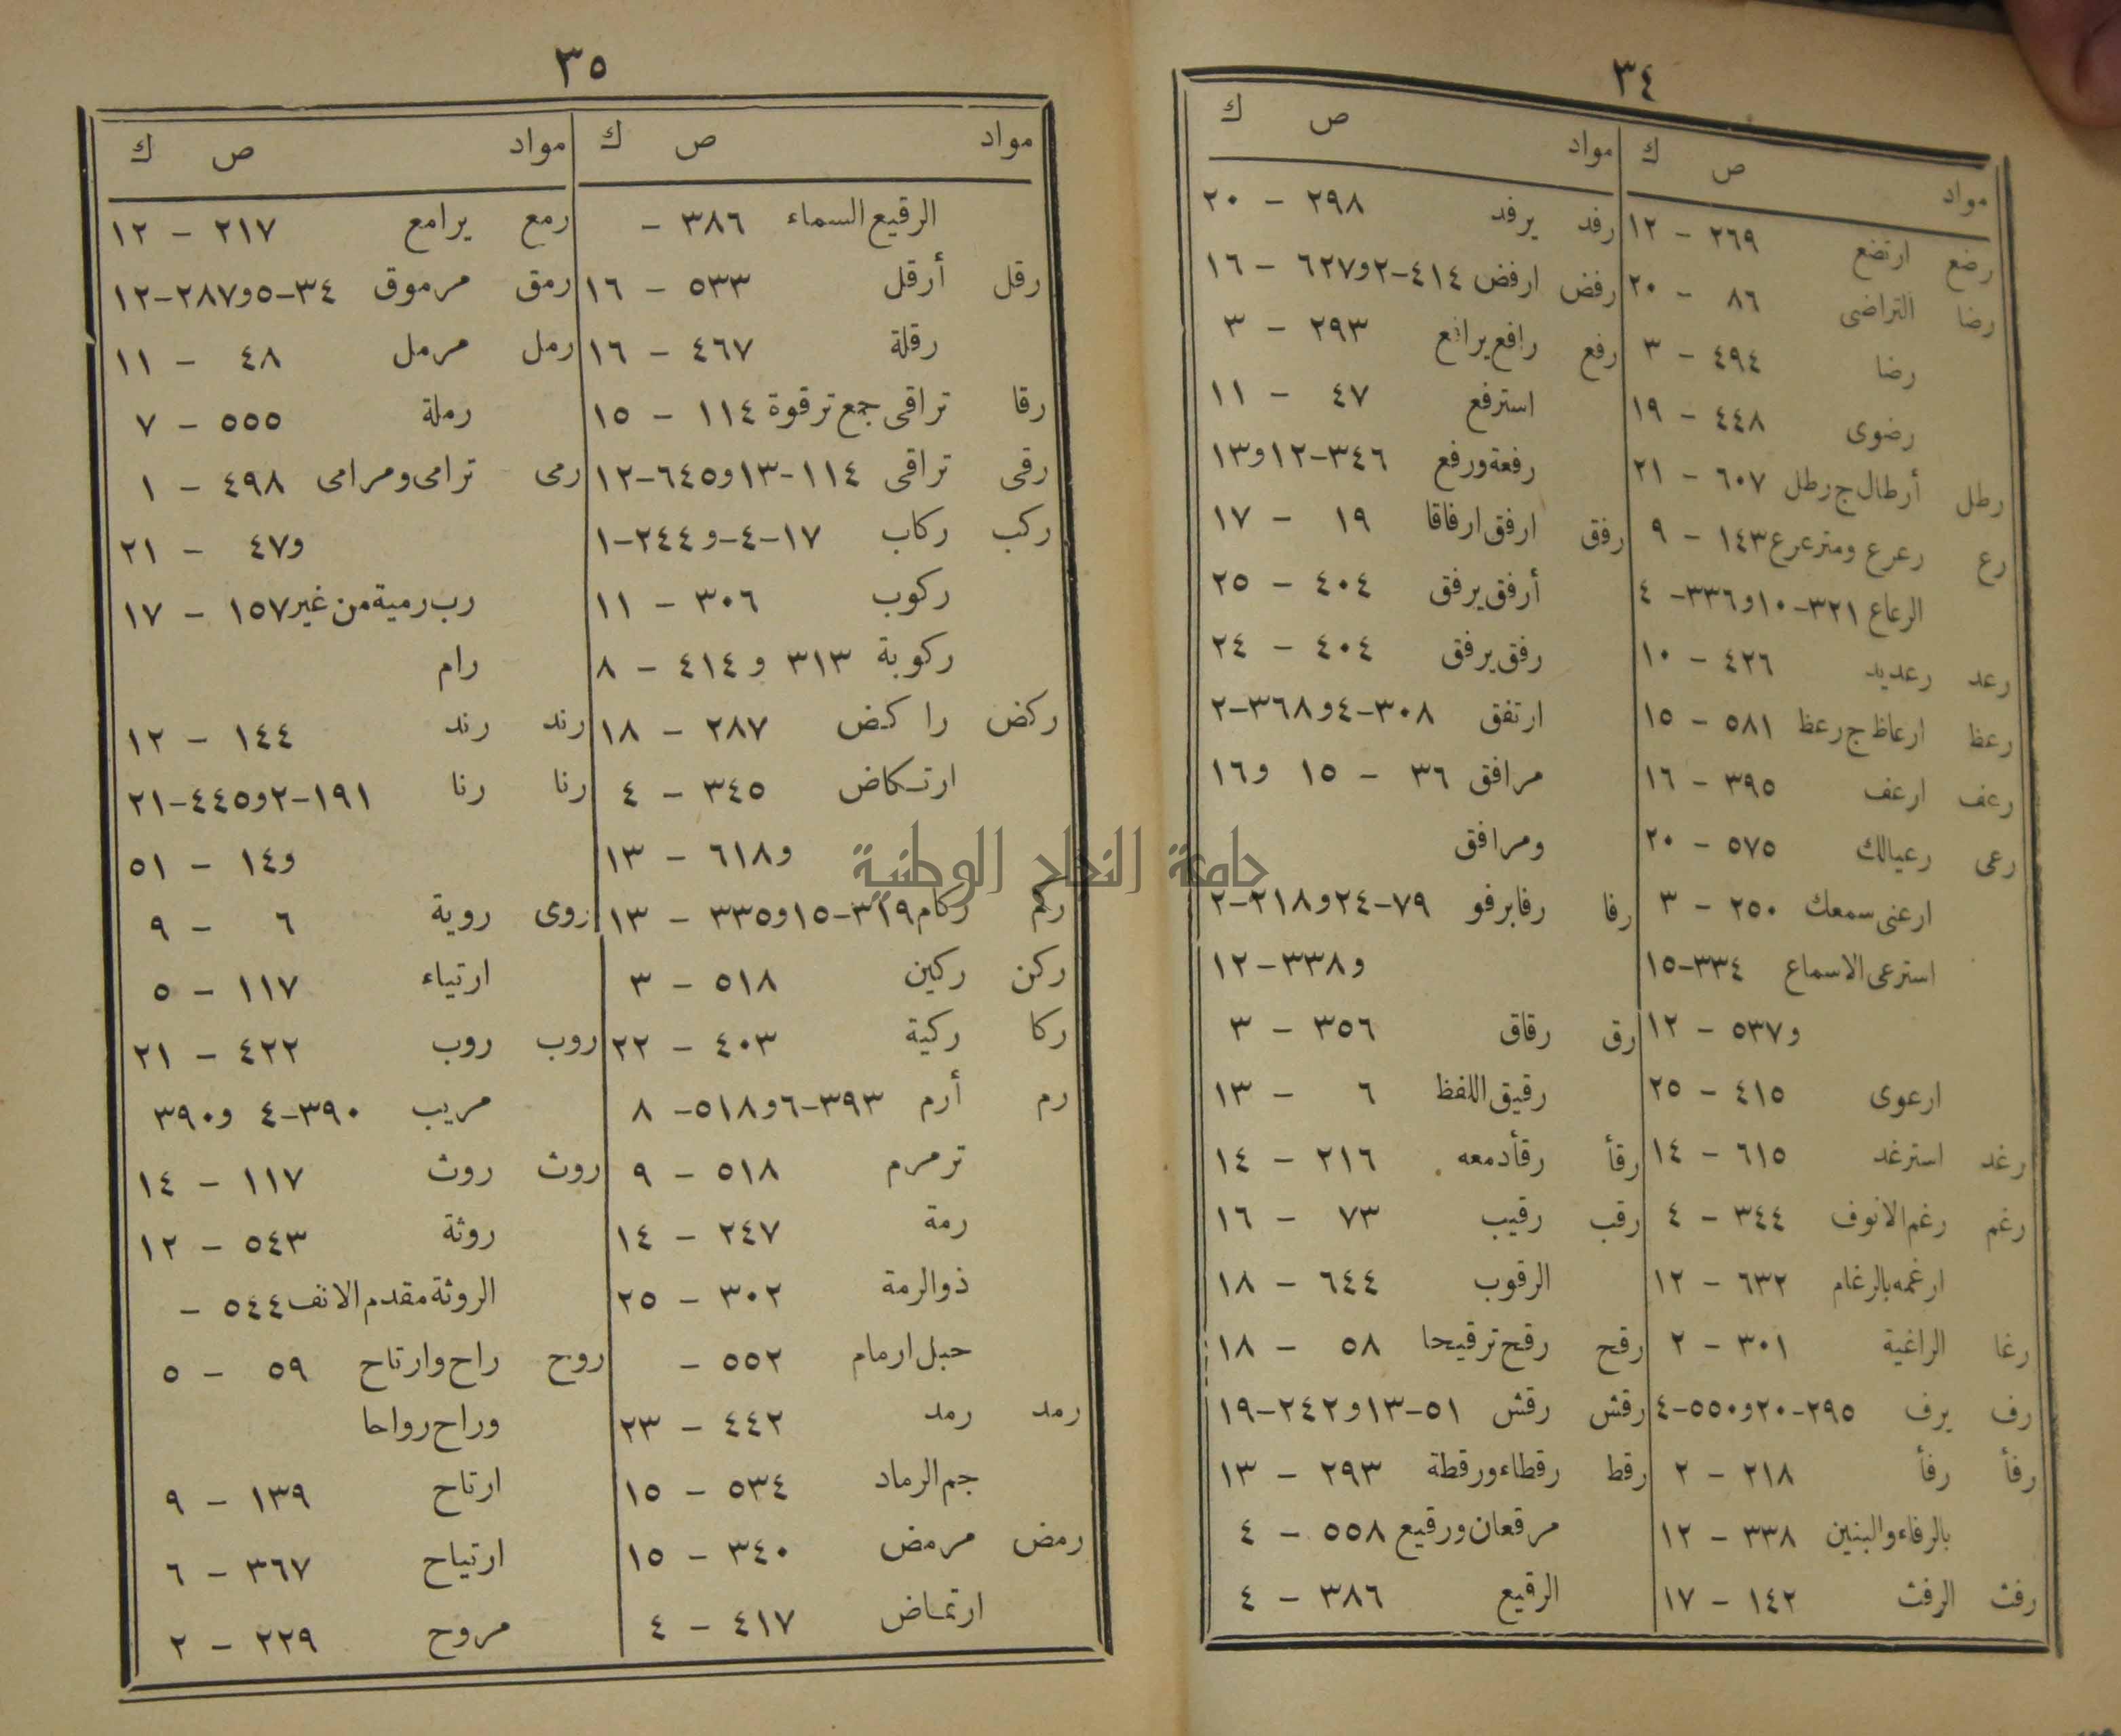 ٣٤
مواد ص ك
رضع ارتضع ٢٦٩ - ١٢
رضا التراضى ٨٦ - ٢٠
رضا ٤٩٤ - ٣
رضوى ٤٤٨ - ١٩
رطل أرطال ج رطل ٦٠٧ - ٢١
رع رعرع ومترعرع ١٤٣ - ٩
الرعاع ٣٢١-١٠و٣٣٦- ٤
رعد رعديد ٤٢٦ - ١٠
رعظ ارعاظ ج رعظ ٥٨١ - ١٥
رعف ارعف ٣٩٥ - ١٦
رعى رعيالك ٥٧٥ - ٢٠
ارعنى سمعك ٢٥٠ - ٣
استرعى الاسماع ٣٣٤-١٥
و٥٣٧ - ١٢
ارعوى ٤١٥ - ٢٥
رغد استرغد ٦١٥ - ١٤
رغم رغم الانوف ٣٤٤ - ٤
ارغمه بالرغام ٦٣٢ - ١٢
رغا الراغية ٣٠١ - ٢
رف يرف ٢٩٥-٢٠و٥٥٠-٤
رفأ رفأ ٢١٨ - ٢
بالرفاء والبنين ٣٣٨ - ١٢
رفث الرفث ١٤٢ - ١٧
مواد ص ك
رفد يرفد ٢٩٨ - ٢٠
رفض ارفض ٤١٤-٢و٦٢٧ - ١٦
رفع رافع يرافع ٢٩٣ - ٣
استرفع ٤٧ - ١١
رفعة ورفع ٣٤٦-١٢و١٣
رفق ارفق ارفاقا ١٩ - ١٧
أرفق يرفق ٤٠٤ - ٢٥
رفق يرفق ٤٠٤ - ٢٤
ارتفق ٣٠٨-٤و٣٦٨-٢
مرافق ٣٦ - ١٥ و١٦
ومرافق
رفا رفا يرفو ٧٩-٢٤و٢١٨-٢
و٣٣٨-١٢
رق رقاق ٣٥٦ - ٣
رقيق اللفظ ٦ - ١٣
رقأ رقأ دمعه ٢١٦ - ١٤
رقب رقيب ٧٣ - ١٦
الرقوب ٦٤٤ - ١٨
رقح رقح ترقيحا ٥٨ - ١٨
رقش رقش ٥١-١٣و٢٤٢-١٩
رقط رقطاء ورقطة ٢٩٣ - ١٣
مرقعان ورقيع ٥٥٨ - ٤
الرقيع ٣٨٦ - ٤
٣٥
مواد ص ك
الرقيع السماء ٣٨٦ -
رقل أرقل ٥٣٣ - ١٦
رقلة ٤٦٧ - ١٦
رقا تراقى جمع ترقوة ١١٤ - ١٥
رقى تراقى ١١٤-١٣و٦٤٥-١٢
ركب ركاب ١٧-٤-و٢٤٤-١
ركوب ٣٠٦ - ١١
ركوبة ٣١٣ و٤١٤ - ٨
ركض راكض ٢٨٧ - ١٨
ارتكاض ٣٤٥ - ٤
و٦١٨ - ١٣
ركم ركام ٣١٩-١٥و٣٣٥ - ١٣
ركن ركين ٥١٨ - ٣
ركا ركية ٤٠٣ - ٢٢
رم أرم ٣٩٣-٦و٥١٨- ٨
ترمرم ٥١٨ - ٩
رمة ٢٤٧ - ١٤
ذوالرمة ٣٠٢ - ٢٥
حبل ارمام ٥٥٢ -
رمد رمد ٤٤٢ - ٢٣
جم الرماد ٥٣٤ - ١٥
رمض مرمض ٣٤٠ - ١٥
ارتماض ٤١٧ - ٤
مواد ص ك
رمع يرامع ٢١٧ - ١٢
رمق مرموق ٣٤-٥و٢٨٧-١٢
رمل مرمل ٤٨ - ١١
رملة ٥٥٥ - ٧
رمى ترامى ومرامى ٤٩٨ - ١
و٤٧ - ٢١
رب رمية من غير ١٥٧ - ١٧
رام
رند رند ١٤٤ - ١٢
رنا رنا ١٩١-٢و٤٤٥-٢١
و١٤ - ٥١
روى روية ٦ - ٩
ارتياء ١١٧ - ٥
روب روب ٤٢٢ - ٢١
مريب ٣٩٠-٤ و٣٩٠
روث روث ١١٧ - ١٤
روثة ٥٤٣ - ١٢
الروثة مقدم الانف ٥٤٤ -
روح راح وارتاح ٥٩ - ٥
وراح رواحا
ارتاح ١٣٩ - ٩
ارتياح ٣٦٧ - ٦
مروح ٢٢٩ - ٢
جامعة النجاح الوطنية